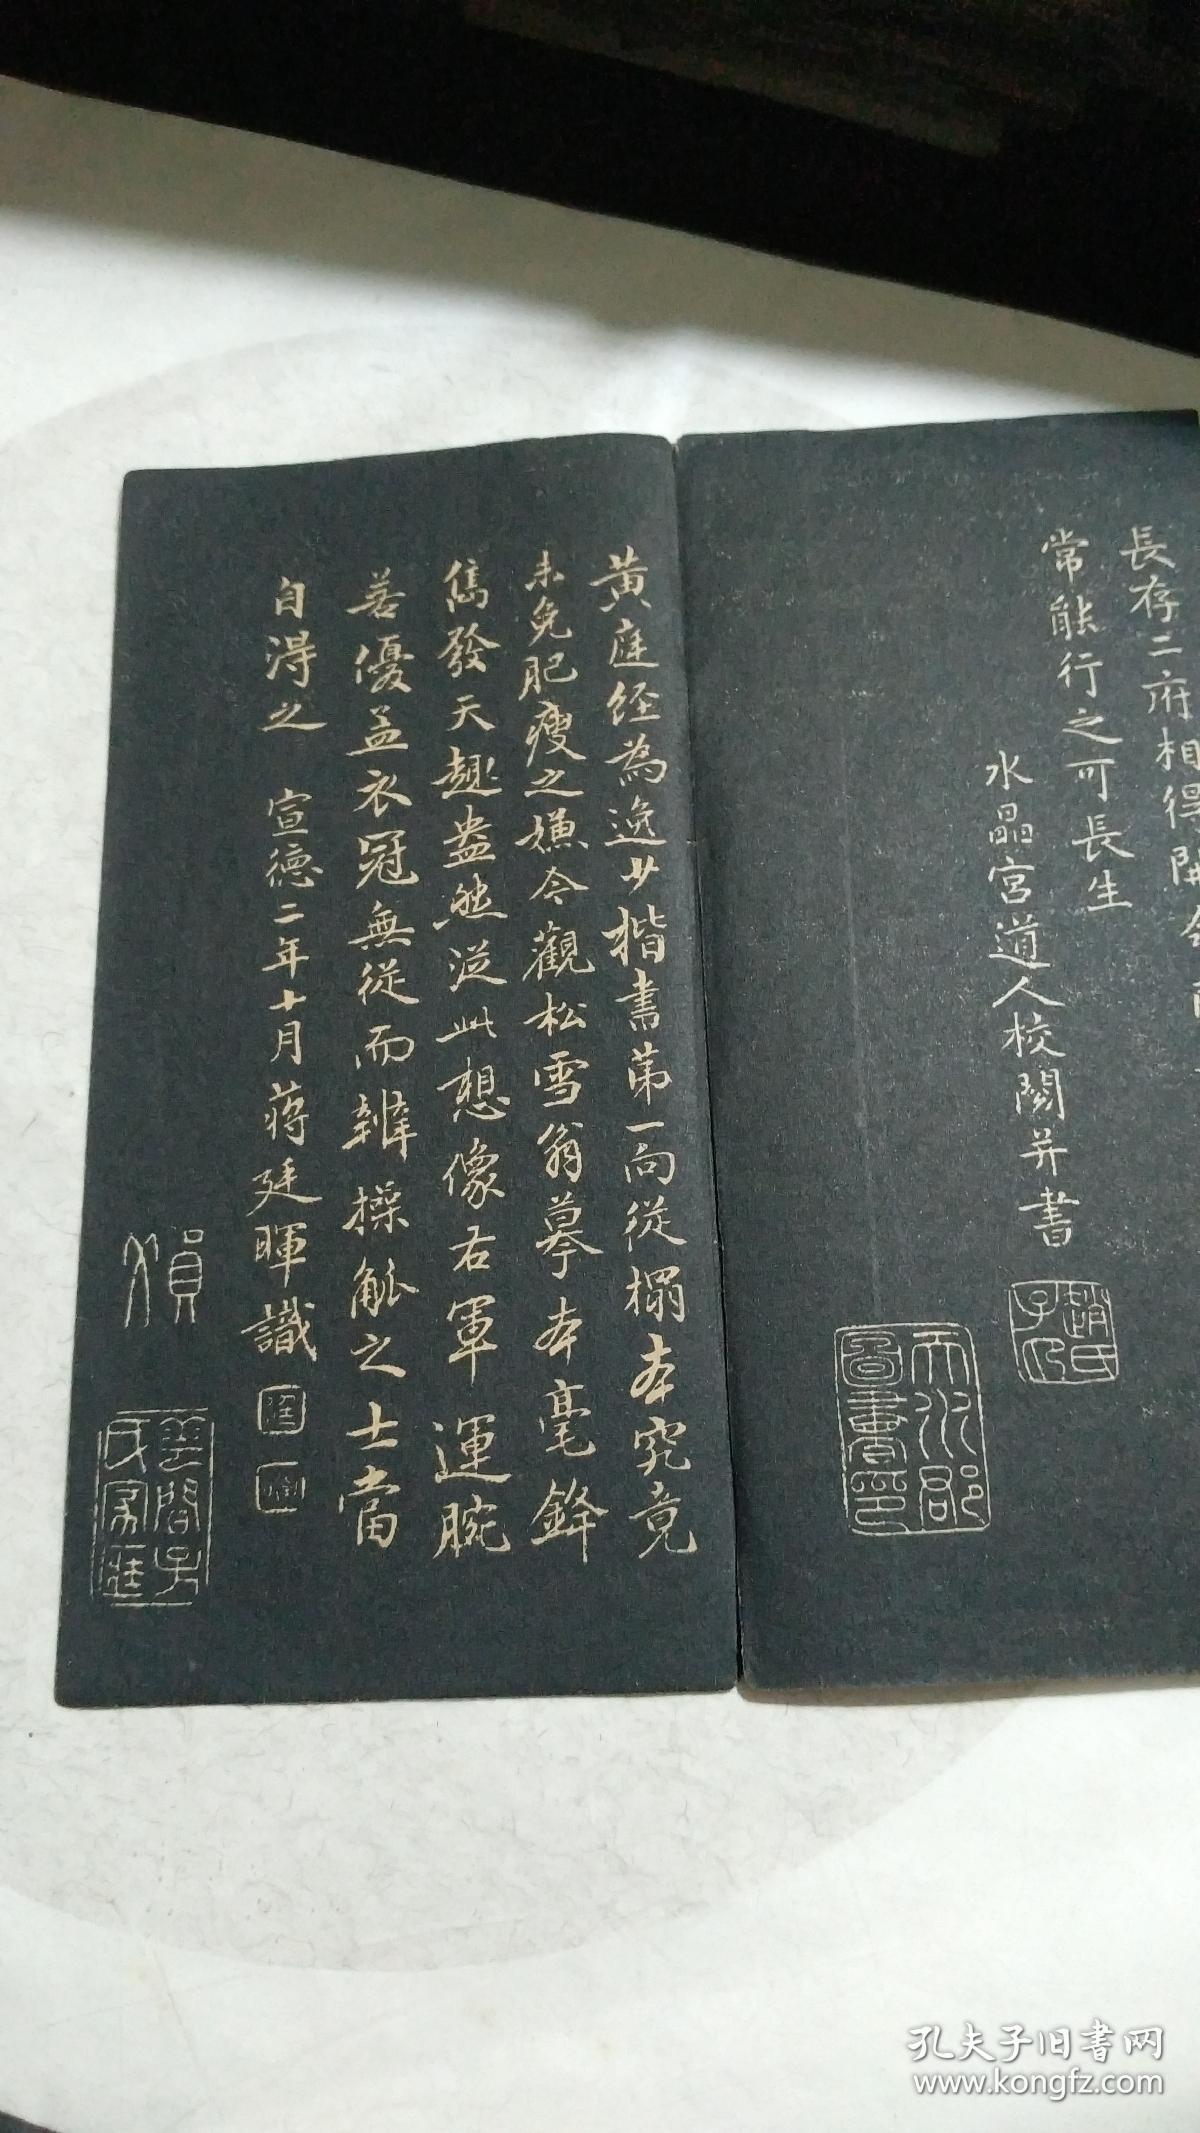 長存二府相得開
常能行之可長生
水晶宮道人校閱并書
趙氏子印
天水郡圖書印
黄庭经為逸少楷書第一向從榻本究竟
未免肥瘦之嫌今觀松雪翁摹本毫鋒
儁發天趣盎然從此想像右軍運腕
若優孟衣冠無從而辨操觚之士當
自得之 宣德二年十月蔣廷暉識
孔夫子旧书网
www.kongfz.com